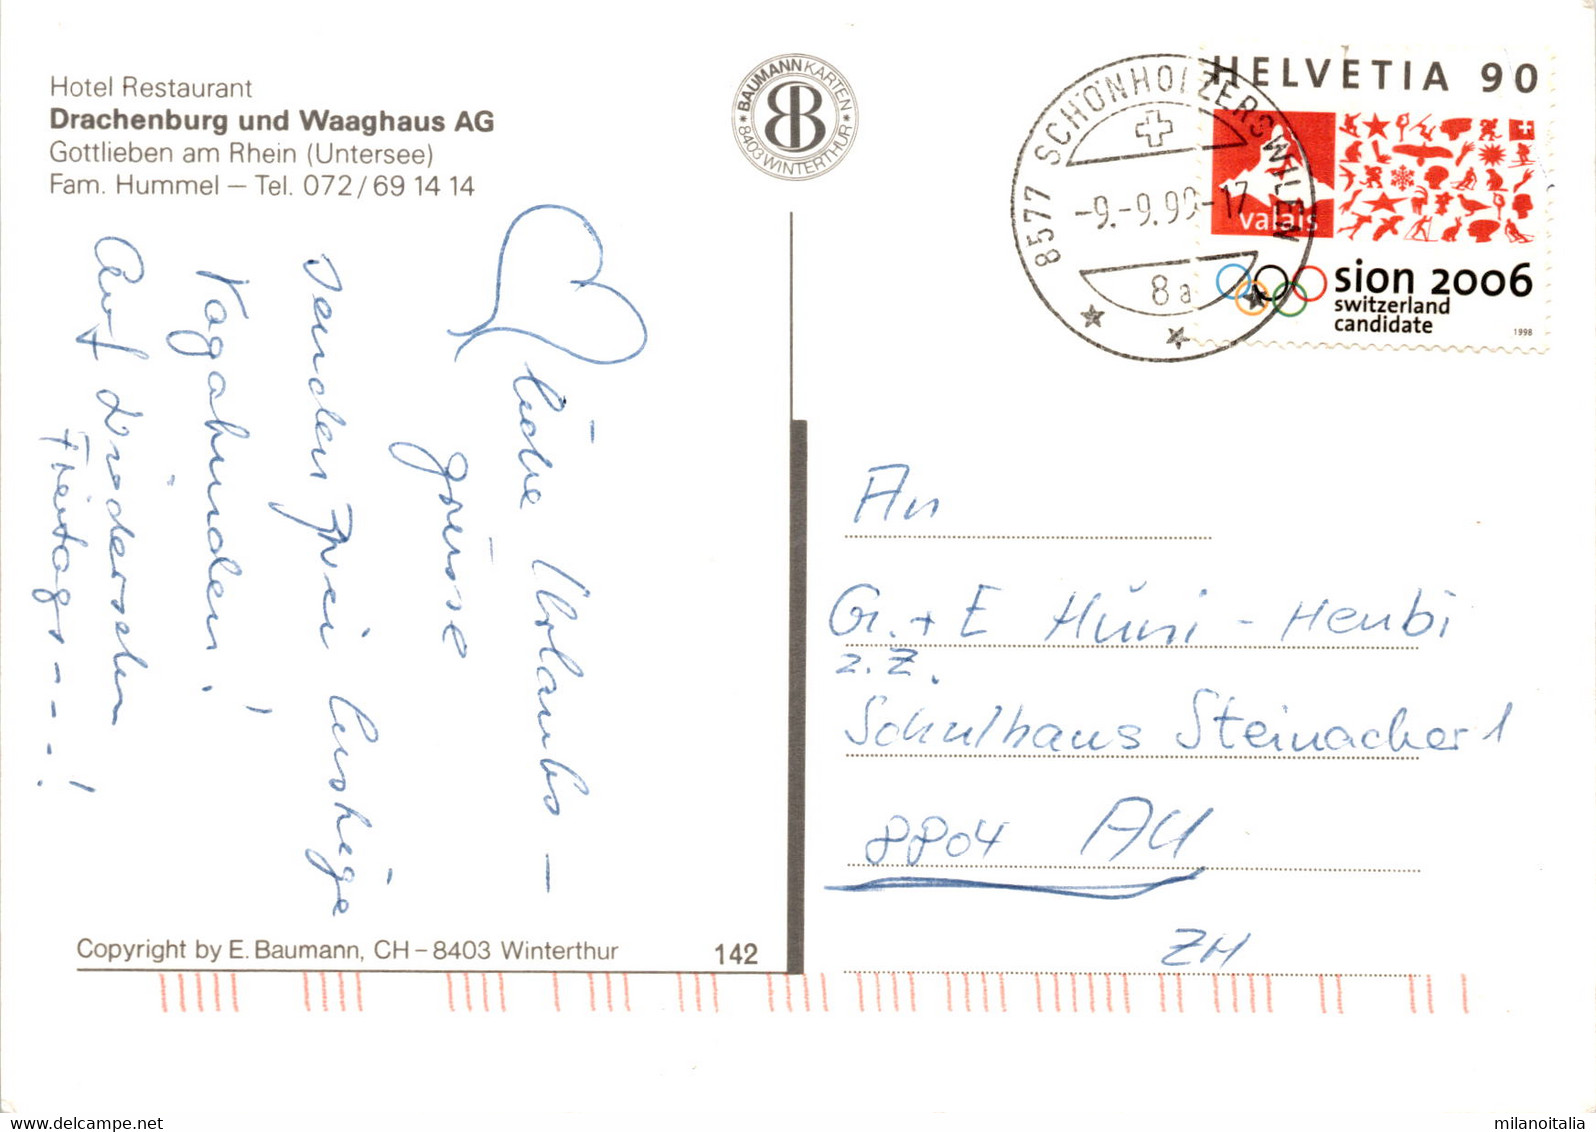 Hotel Restaurant
Drachenburg und Waaghaus AG
Gottlieben am Rhein (Untersee)
Fam. Hummel – Tel. 072/69 14 14
* BAUMANNKARTEN * 8403 WINTERTHUR
B B
8577 SCHÖNHOLZERSWILEN
-9.-9.99-17
8a
HELVETIA 90
valais
sion 2006
switzerland
candidate
1998
liebe Urlaubs-
grüsse
senden zwei lustige
Vagabunden!
Auf Wiedersehen
Freitags---!
An
G. + E Hüni - Heubi
z.Z.
Schulhaus Steinacher 1
8804 AU
ZH
Copyright by E. Baumann, CH-8403 Winterthur
142
milanoitalia